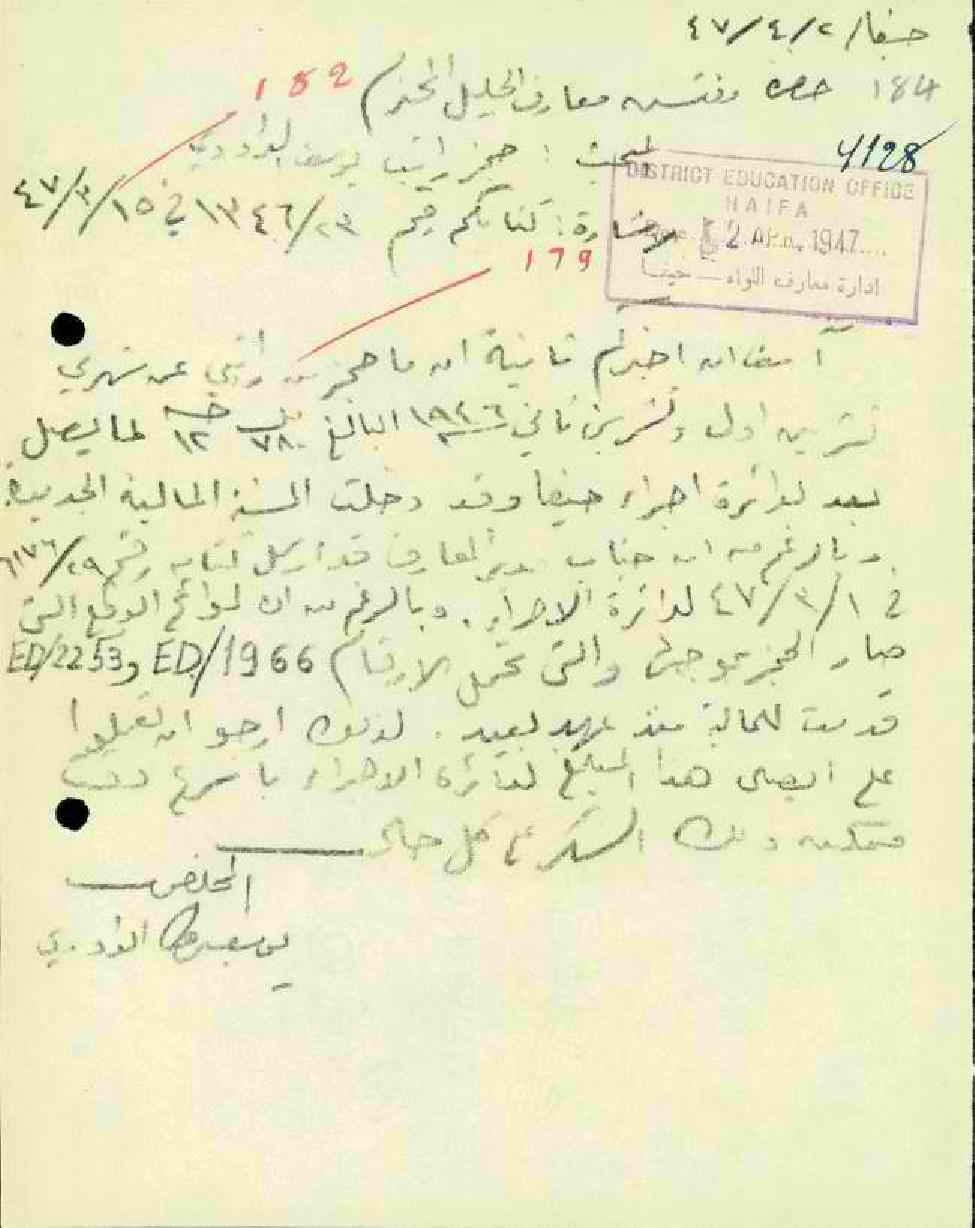 حيفا/ ٢/ ٤/ ٤٧
184 حضرة مفتش معارف الجليل المحترم 182
4128
البحث : حجز راتب يوسف الداودي
DISTRICT EDUCATION OFFICE
HAIFA
2 APR 1947
ادارة معارف اللواء — حيفا
الاشارة : كتابكم رقم ١٣٤٦/٢٣ في ١٥/ ٣/ ٤٧
179
آسف ان اخبركم ثانية ان ما حجز من راتبي عن شهري
تشرين اول وتشرين ثاني ١٩٤٦ البالغ ٧٨٠ مل ١٢ جنيه لما يصل
بعد لدائرة اجراء حيفا وقد دخلت السنة المالية الجديدة.
وبالرغم من ان جناب مدير المعارف قد ارسل كتابه رقم ٢٩/
في ١/ ٣/ ٤٧ لدائرة الاجراء. وبالرغم من ان لوائح الدفع التي
صار الحجز بموجبها والتي تحمل الارقام ED/1966 و ED/2253
قدمت للمالية منذ عهد بعيد. لذلك ارجو ان تعملوا
على ايصال هذا المبلغ لدائرة الاجراء باسرع وقت
ممكن ولك الشكر على كل حال
المخلص
يوسف الداودي